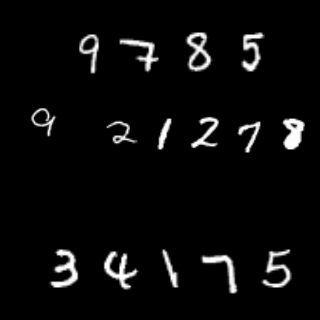 9785
9 21278
34175